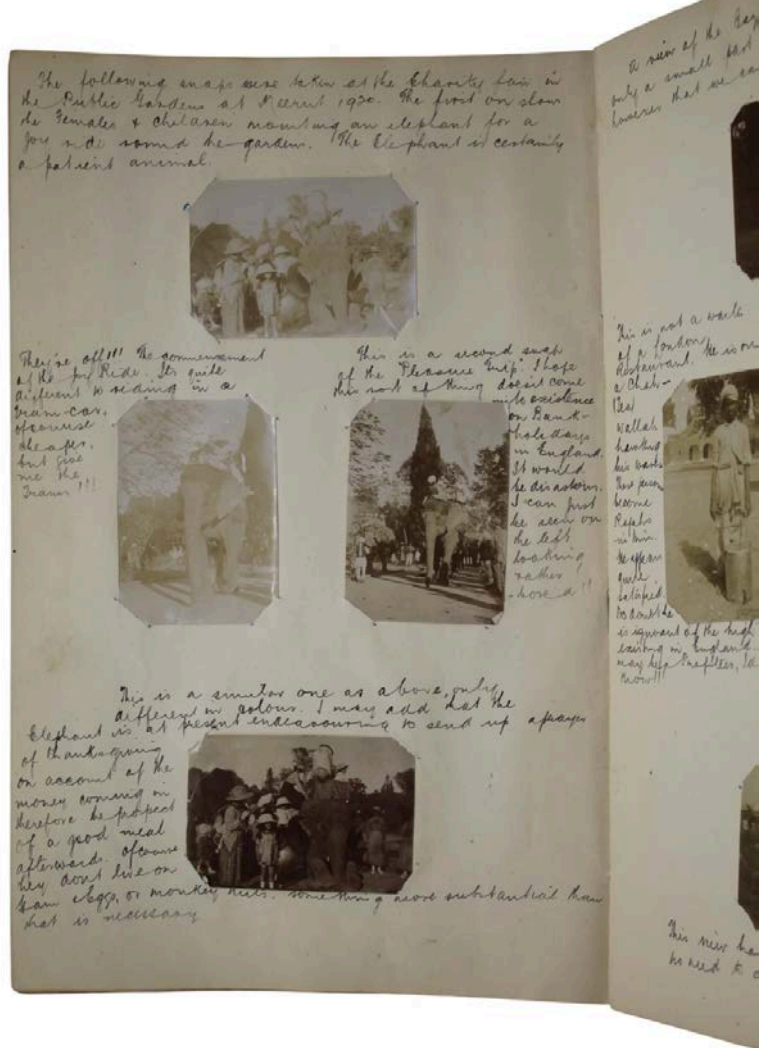 The following snaps were taken at the Charity fair in
the Public Gardens at Meerut 1920. The first one shows
the Females & children mounting an elephant for a
joy ride round the garden. The Elephant is certainly
a patient animal.
They're off!!! The commencement
of the joy Ride. Its quite
different to riding in a
Tram-car,
ofcourse
cheaper,
but give
me the
Trams!!!
This is a second snap
of the "Pleasure Trip". I hope
this sort of thing doesn't come
into existence
on Bank-
holidays
in England.
It would
be disastrous.
I can just
be seen on
the left
looking
rather
bored!!
This is a similar one as above, only
different in colour. I may add that the
Elephant is at present endeavouring to send up a prayer
of thanksgiving
on account of the
money coming in
therefore the prospect
of a good meal
afterwards. ofcourse
they don't live on
Eggs, or monkey nuts. something more substantial than
that is necessary
a view of the
only a small part
however that we
This is not a waste
of a London
Restaurant. He is
a Chah-
wallah
hawking
his wares
These
become
in time.
He appears
quite
satisfied.
No doubt he
is ignorant of the high
existing in England.
may be a Profiteer,
know!!
This view
no need to